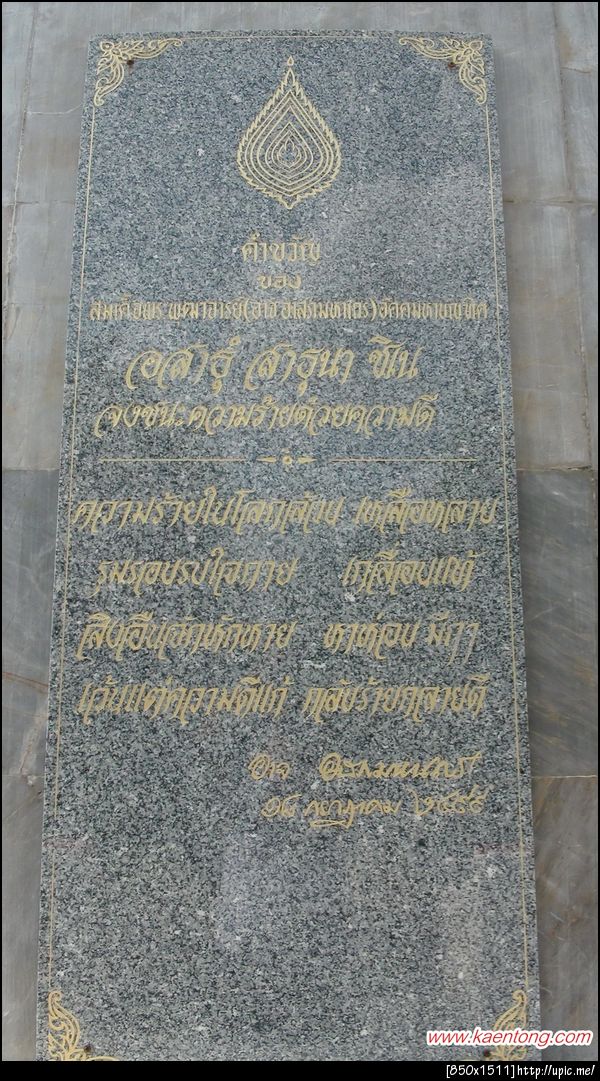 คำขวัญ
ของ
สมเด็จพระพุฒาจารย์(อาจ อาสภมหาเถร)อัคคมหาบัณฑิต
อสาธุํ สาธุนา ชิเน
จงชนะความร้ายด้วยความดี
ความร้ายในโลกล้วน เหลือหลาย
รุมรอบรบใจกาย เกลื่อนแท้
สิ่งอื่นจักหักหาย ห่อน มีกา
เว้นแต่ความดีแก้ กลับร้ายกลายดี
อาจ อาสภมหาเถร
กรกฎาคม ๒๔๙๕
www.kaentong.com
[850x1511]http://upic.me/